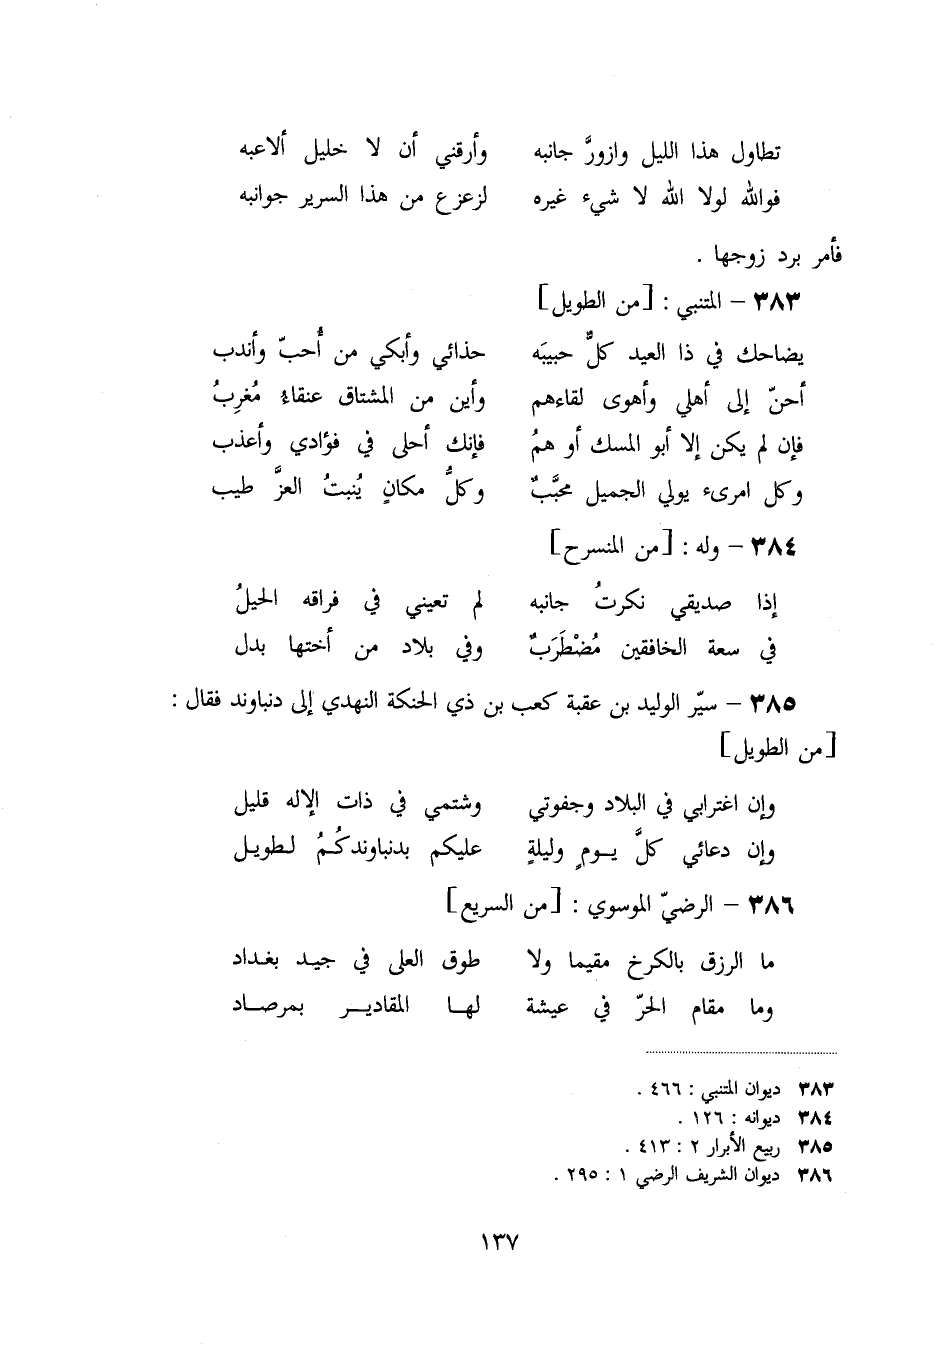 تطاول هذا الليل وازورَّ جانبه وأرقني أن لا خليل ألاعبه
فوالله لولا الله لا شيء غيره لزعزع من هذا السرير جوانبه
فأمر برد زوجها .
٣٨٣ – المتنبي : [من الطويل]
يضاحك في ذا العيد كلٌّ حبيبَه حذائي وأبكي من أُحبّ وأندب
أحنّ إلى أهلي وأهوى لقاءهم وأين من المشتاق عنقاءُ مُغرِبُ
فإن لم يكن إلا أبو المسك أو همُ فإنك أحلى في فؤادي وأعذب
وكل امرىء يولي الجميل محبَّبٌ وكلُّ مكانٍ يُنبتُ العزَّ طيب
٣٨٤ – وله : [من المنسرح]
إذا صديقي نكرتُ جانبه لم تعيني في فراقه الحيلُ
في سعة الخافقين مُضْطَرَبٌ وفي بلاد من أختها بدل
٣٨٥ – سيّر الوليد بن عقبة كعب بن ذي الحنكة النهدي إلى دنباوند فقال :
[من الطويل]
وإن اغترابي في البلاد وجفوتي وشتمي في ذات الإله قليل
وإن دعائي كلَّ يـومٍ وليلةٍ عليكم بدنباوندكُمُ لـطويـل
٣٨٦ – الرضيّ الموسوي : [من السريع]
ما الرزق بالكرخ مقيما ولا طوق العلى في جيـد بغـداد
وما مقام الحرّ في عيشة لهـا المقاديـر بمرصـاد
٣٨٣ ديوان المتنبي : ٤٦٦ .
٣٨٤ ديوانه : ١٢٦ .
٣٨٥ ربيع الأبرار ٢ : ٤١٣ .
٣٨٦ ديوان الشريف الرضي ١ : ٢٩٥ .
١٣٧